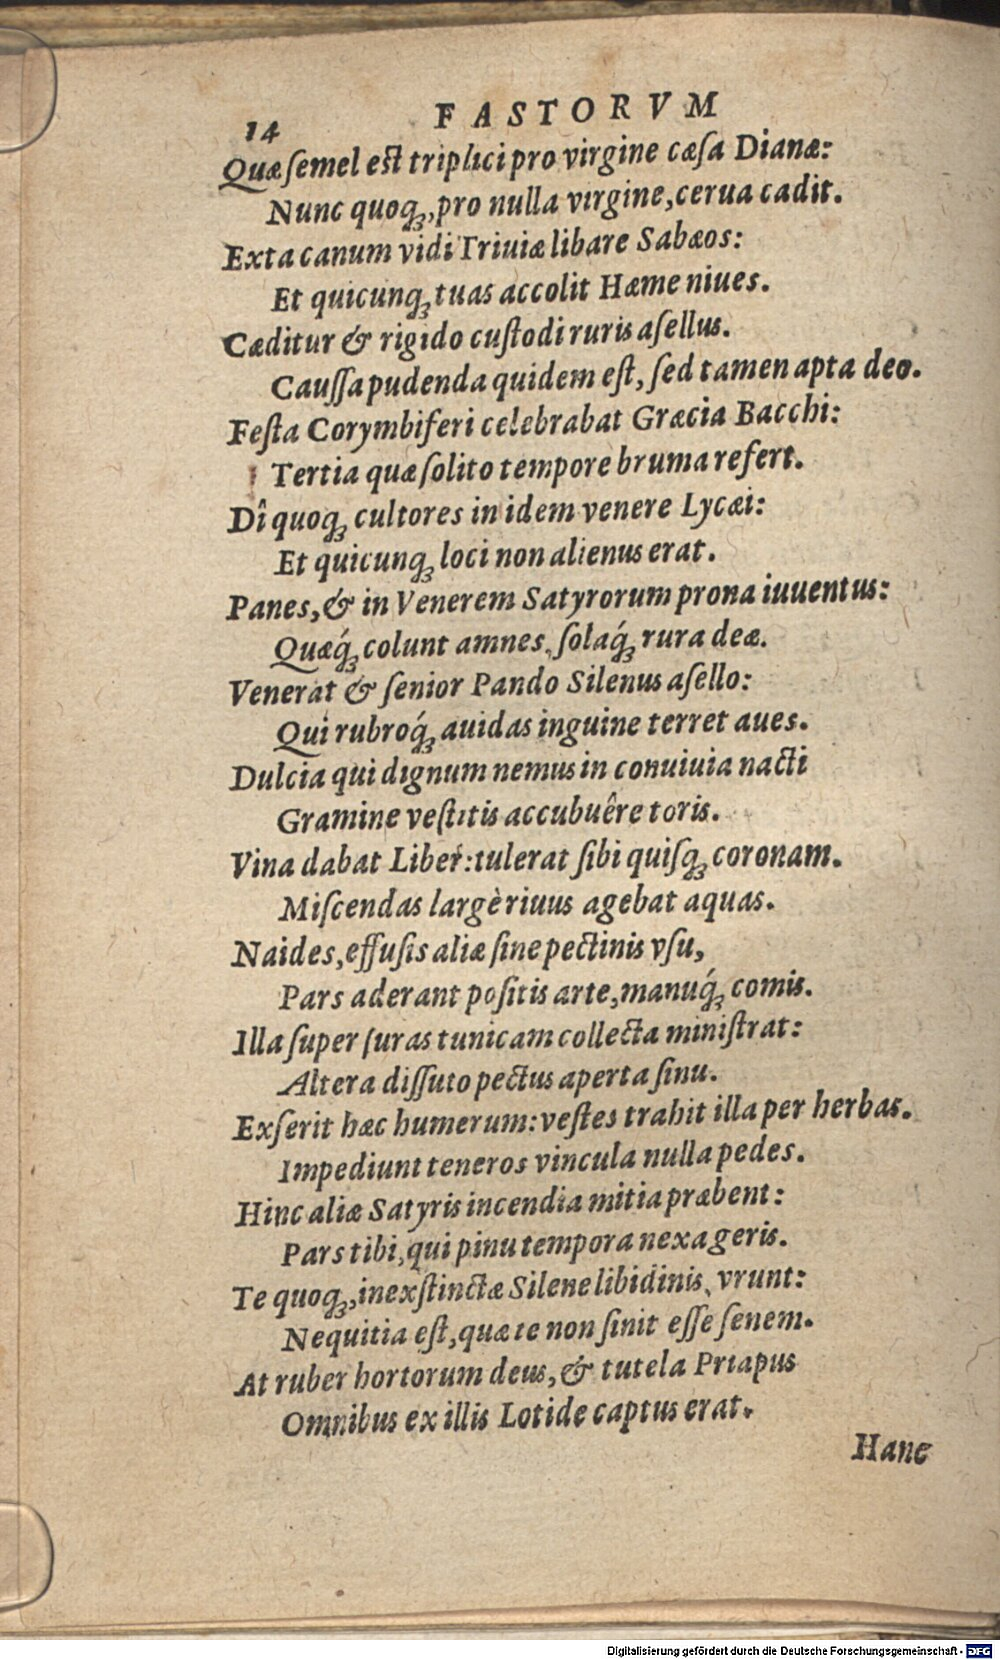 14 FASTORVM
Quæ ſemel eſt triplici pro virgine cæſa Dianæ:
Nunc quoq́ꝫ, pro nulla virgine, cerua cadit.
Exta canum vidi Triuiæ libare Sabæos:
Et quicunqꝫ tuas accolit Hæme niues.
Cæditur & rigido cuſtodi ruris aſellus.
Cauſſa pudenda quidem eſt, ſed tamen apta deo.
Feſta Corymbiferi celebrabat Græcia Bacchi:
Tertia quæ ſolito tempore bruma refert.
Dî quoqꝫ cultores in idem venere Lycæi:
Et quicunqꝫ loci non alienus erat.
Panes, & in Venerem Satyrorum prona iuuentus:
Quæq́ꝫ colunt amnes, ſolaq́ꝫ rura deæ.
Venerat & ſenior Pando Silenus aſello:
Qui rubroq́ꝫ auidas inguine terret aues.
Dulcia qui dignum nemus in conuiuia nacti
Gramine veſtitis accubuêre toris.
Vina dabat Liber: tulerat ſibi quiſqꝫ coronam.
Miſcendas largè riuus agebat aquas.
Naides, effuſis aliæ ſine pectinis vſu,
Pars aderant poſitis arte, manuq́ꝫ comis.
Illa ſuper ſuras tunicam collecta miniſtrat:
Altera diſſuto pectus aperta ſinu.
Exſerit hæc humerum: veſtes trahit illa per herbas.
Impediunt teneros vincula nulla pedes.
Hinc aliæ Satyris incendia mitia præbent:
Pars tibi, qui pinu tempora nexa geris.
Te quoqꝫ, inexſtinctæ Silene libidinis, vrunt:
Nequitia eſt, quæ te non ſinit eſſe ſenem.
At ruber hortorum deus, & tutela Priapus
Omnibus ex illis Lotide captus erat.
Hanc
Digitalisierung gefördert durch die Deutsche Forschungsgemeinschaft - DFG